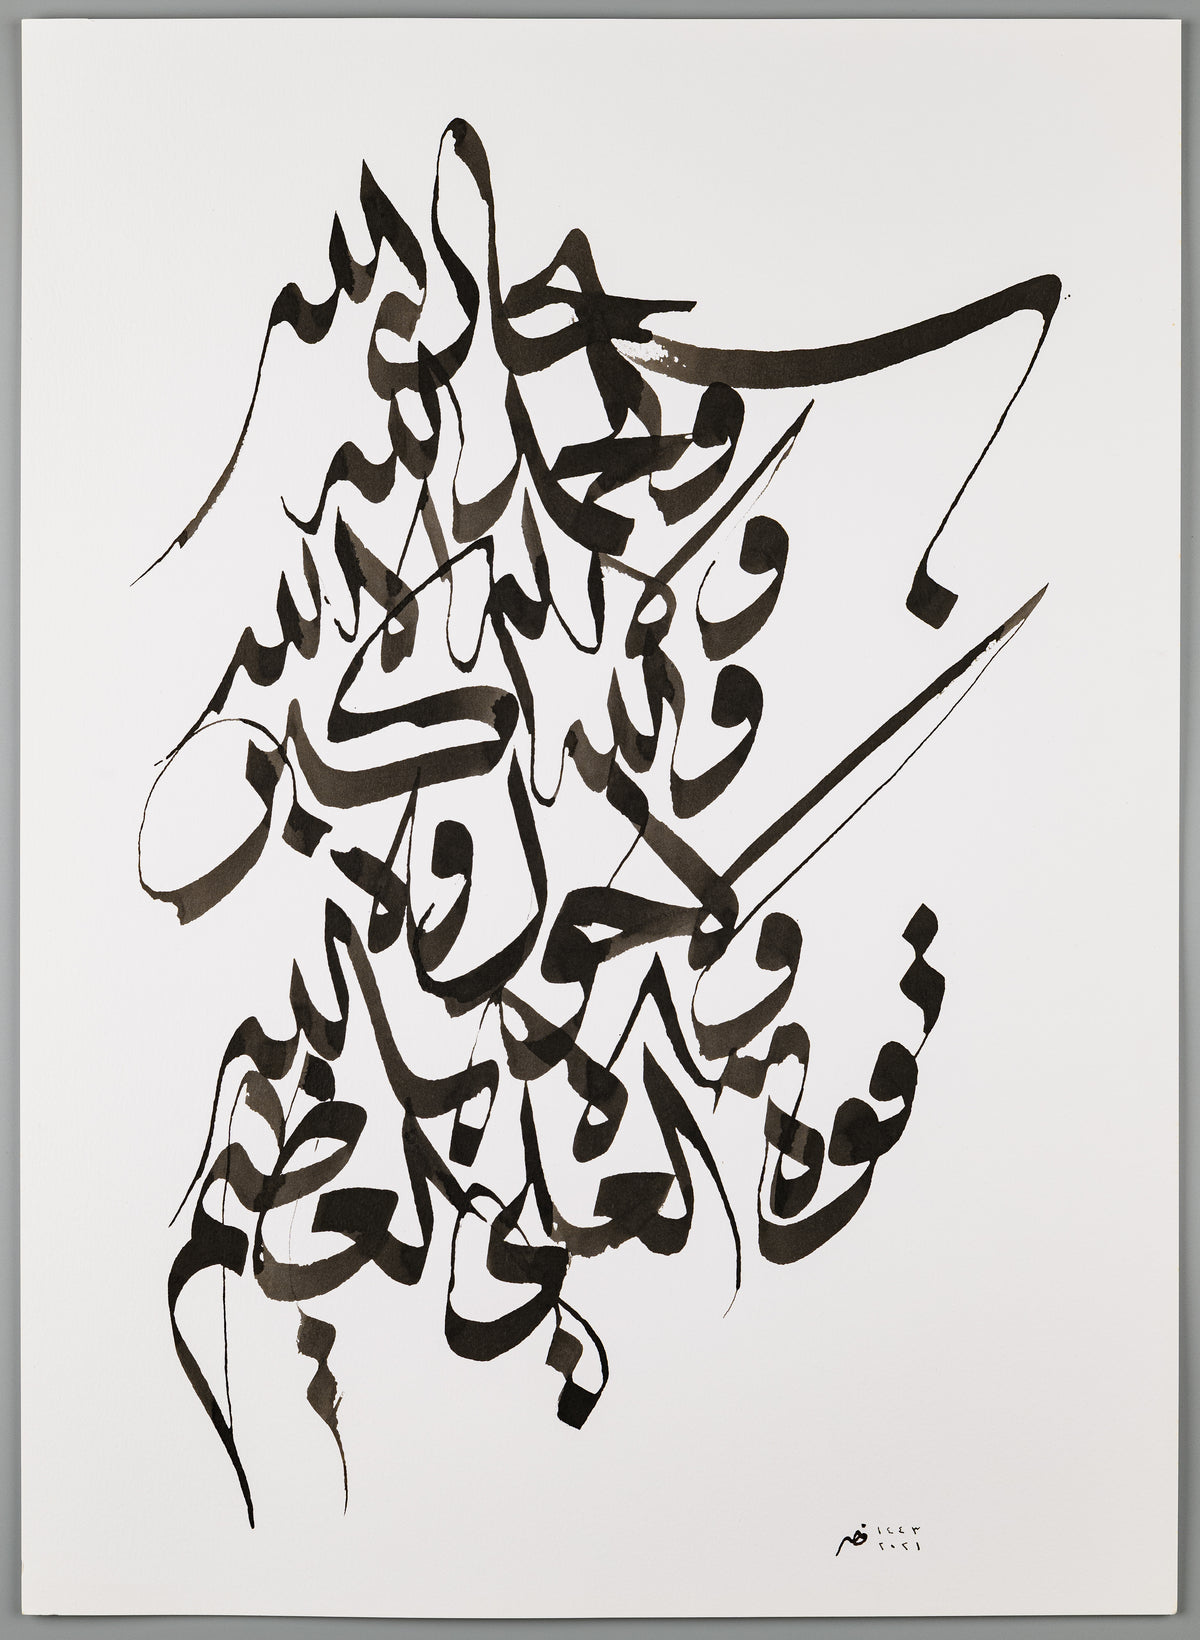 سبحان الله
والحمد لله
ولا إله إلا الله
والله أكبر
ولا حول ولا
قوة إلا بالله
العلي العظيم
١٤٤٣
٢٠٢١